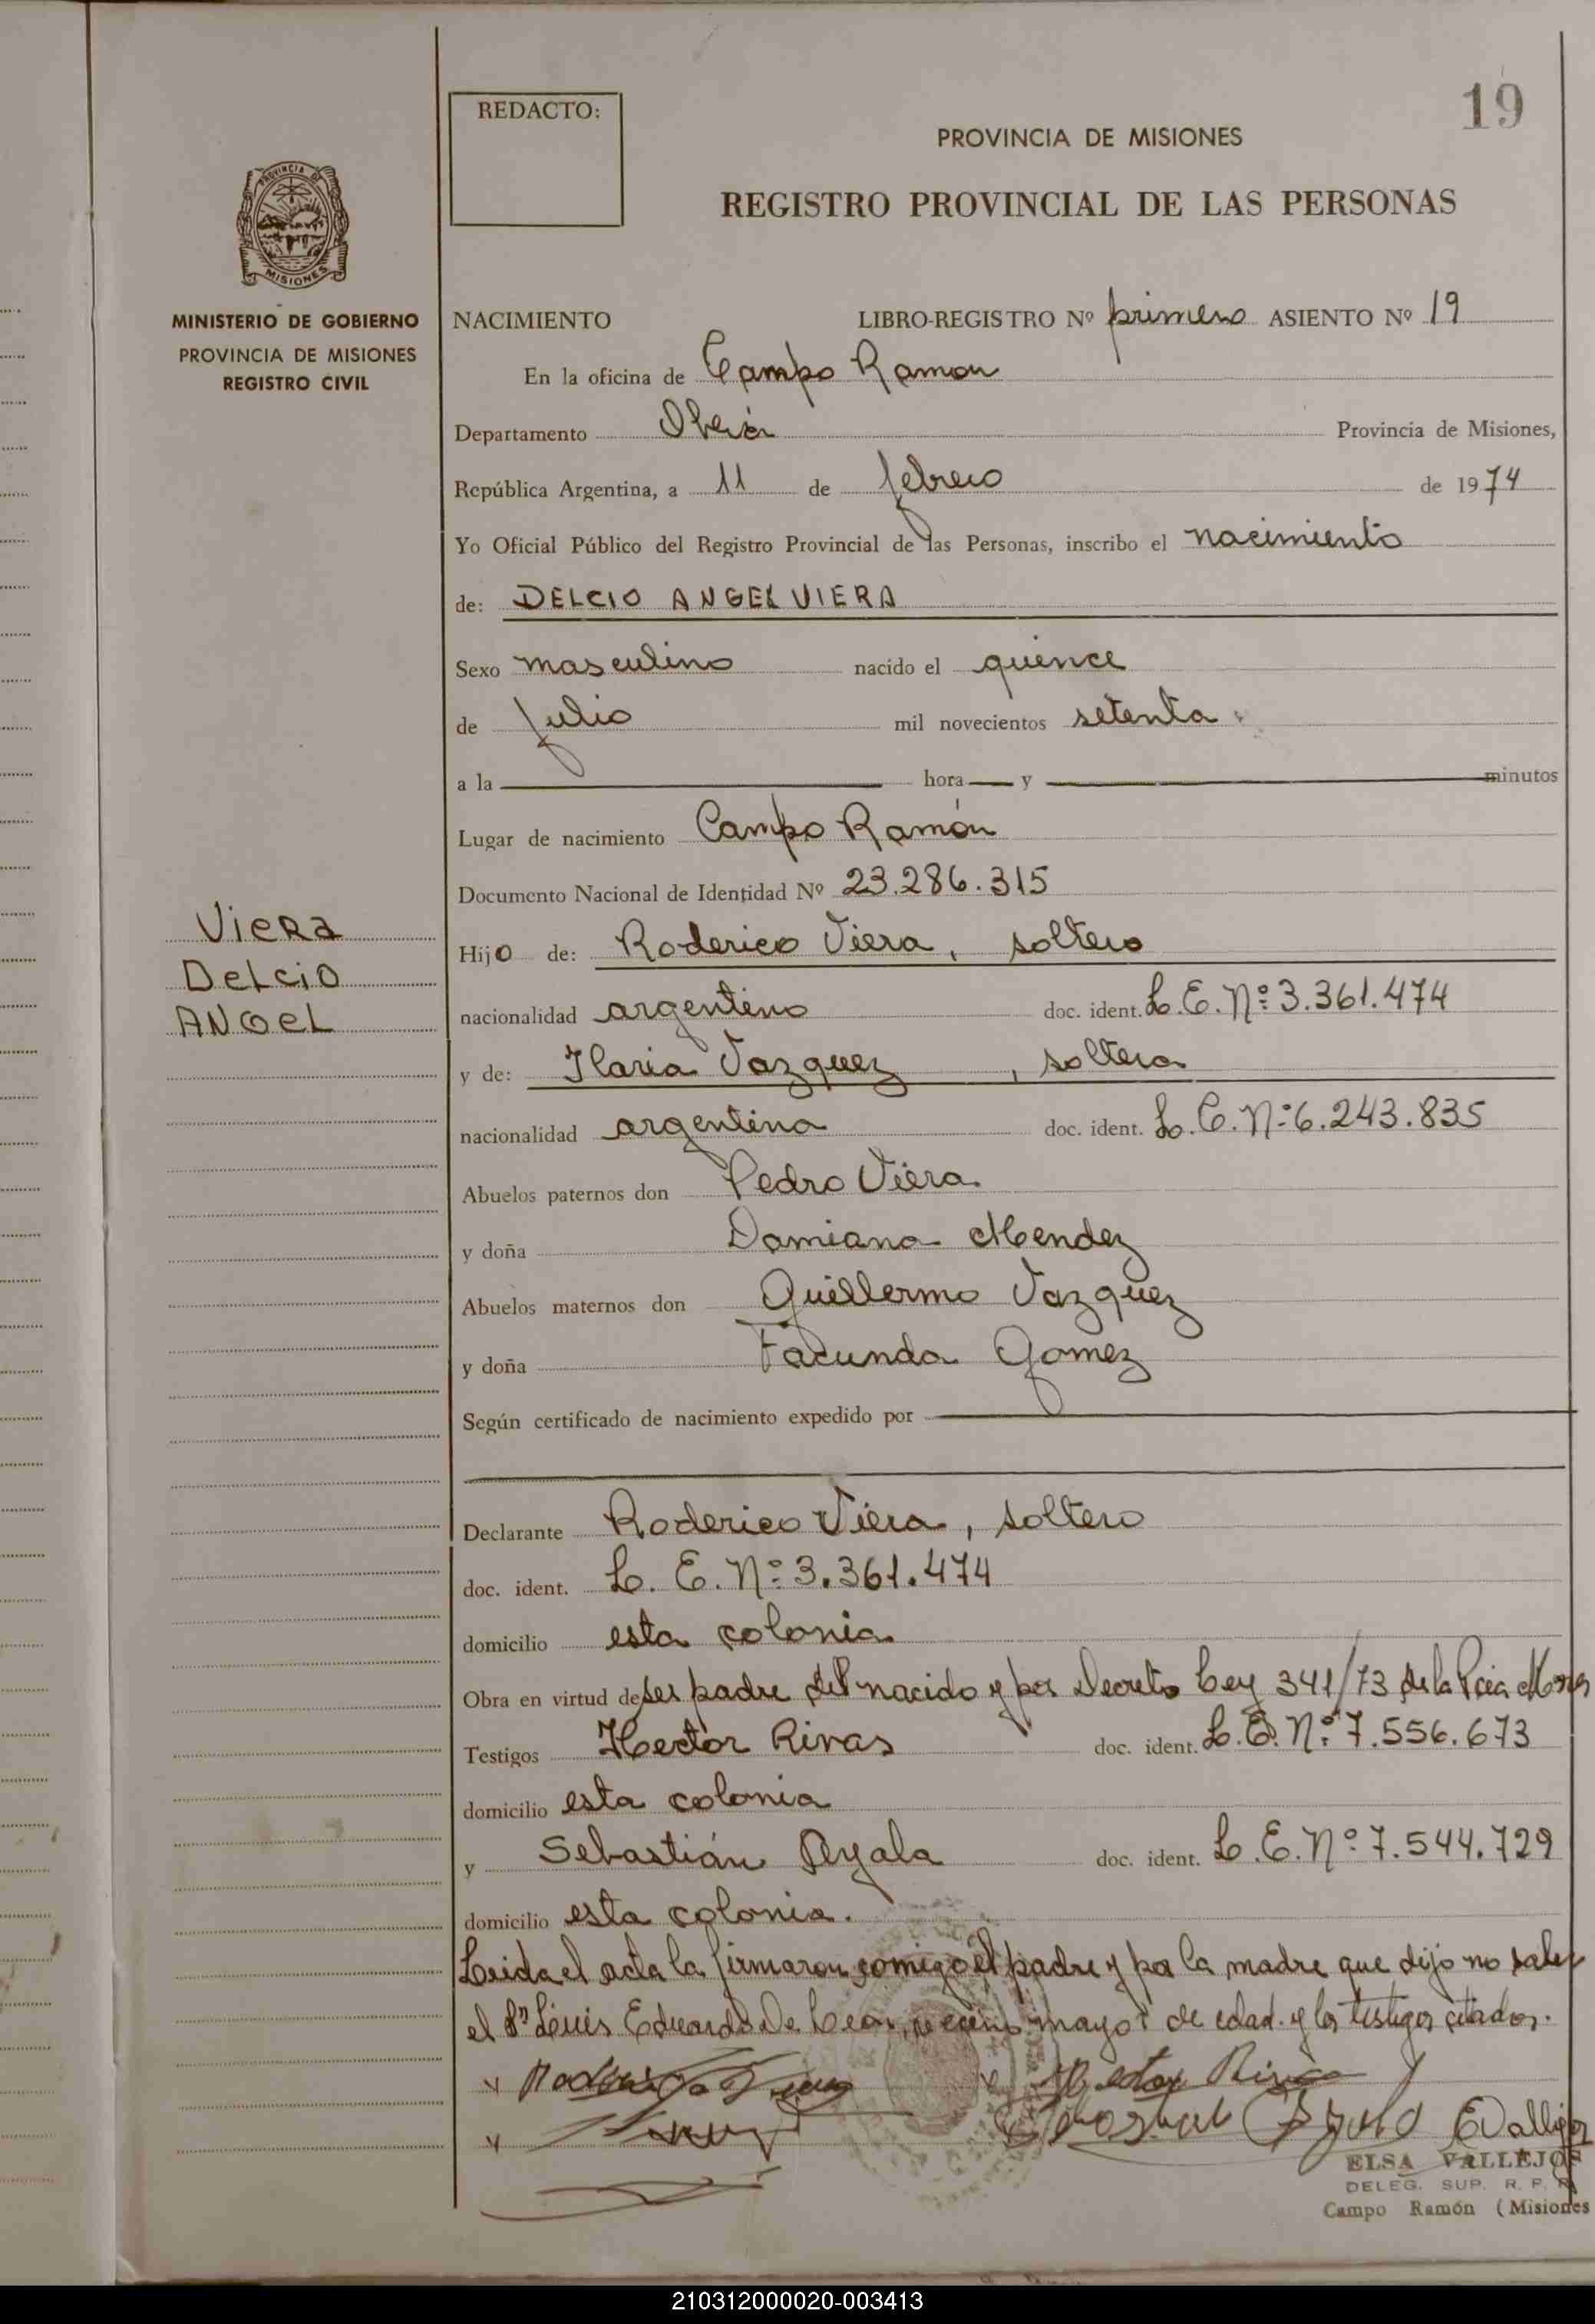 19
REDACTO:
PROVINCIA DE MISIONES
REGISTRO PROVINCIAL DE LAS PERSONAS
PROVINCIA DE
MISIONES
MINISTERIO DE GOBIERNO
PROVINCIA DE MISIONES
REGISTRO CIVIL
NACIMIENTO LIBRO-REGISTRO Nº primero ASIENTO Nº 19
En la oficina de Campo Ramon
Departamento Oberá Provincia de Misiones,
República Argentina, a 11 de febrero de 1974
Yo Oficial Público del Registro Provincial de las Personas, inscribo el nacimiento
de: DELCIO ANGEL VIERA
Sexo masculino nacido el quince
de Julio mil novecientos setenta
a la hora y minutos
Lugar de nacimiento Campo Ramón
Documento Nacional de Identidad Nº 23.286.315
Viera
Delcio
Angel
Hijo de: Roderico Viera, soltero
nacionalidad argentino doc. ident. L.E. Nº 3.361.474
y de: Ilaria Vazquez, soltera
nacionalidad argentina doc. ident. L.C. Nº 6.243.835
Abuelos paternos don Pedro Viera
y doña Damiana Mendez
Abuelos maternos don Guillermo Vazquez
y doña Facunda Gomez
Según certificado de nacimiento expedido por
Declarante Roderico Viera, soltero
doc. ident. L. E. Nº 3.361.474
domicilio esta colonia
Obra en virtud de ser padre del nacido y por Decreto Ley 341/73 de la Pcia
Testigos Hector Rivas doc. ident. L.E. Nº 7.556.673
domicilio esta colonia
y Sebastián Ayala doc. ident. L.E. Nº 7.544.729
domicilio esta colonia.
Leida el acta la firmaron comigo el padre y por la madre que dijo no saber
el Sr Luis Eduardo De Leon, vecino mayor de edad y los testigos citados.
Hector Rivas
E Vallejos
ELSA VALLEJOS
DELEG. SUP. R. P. P.
Campo Ramón (Misiones
210312000020-003413